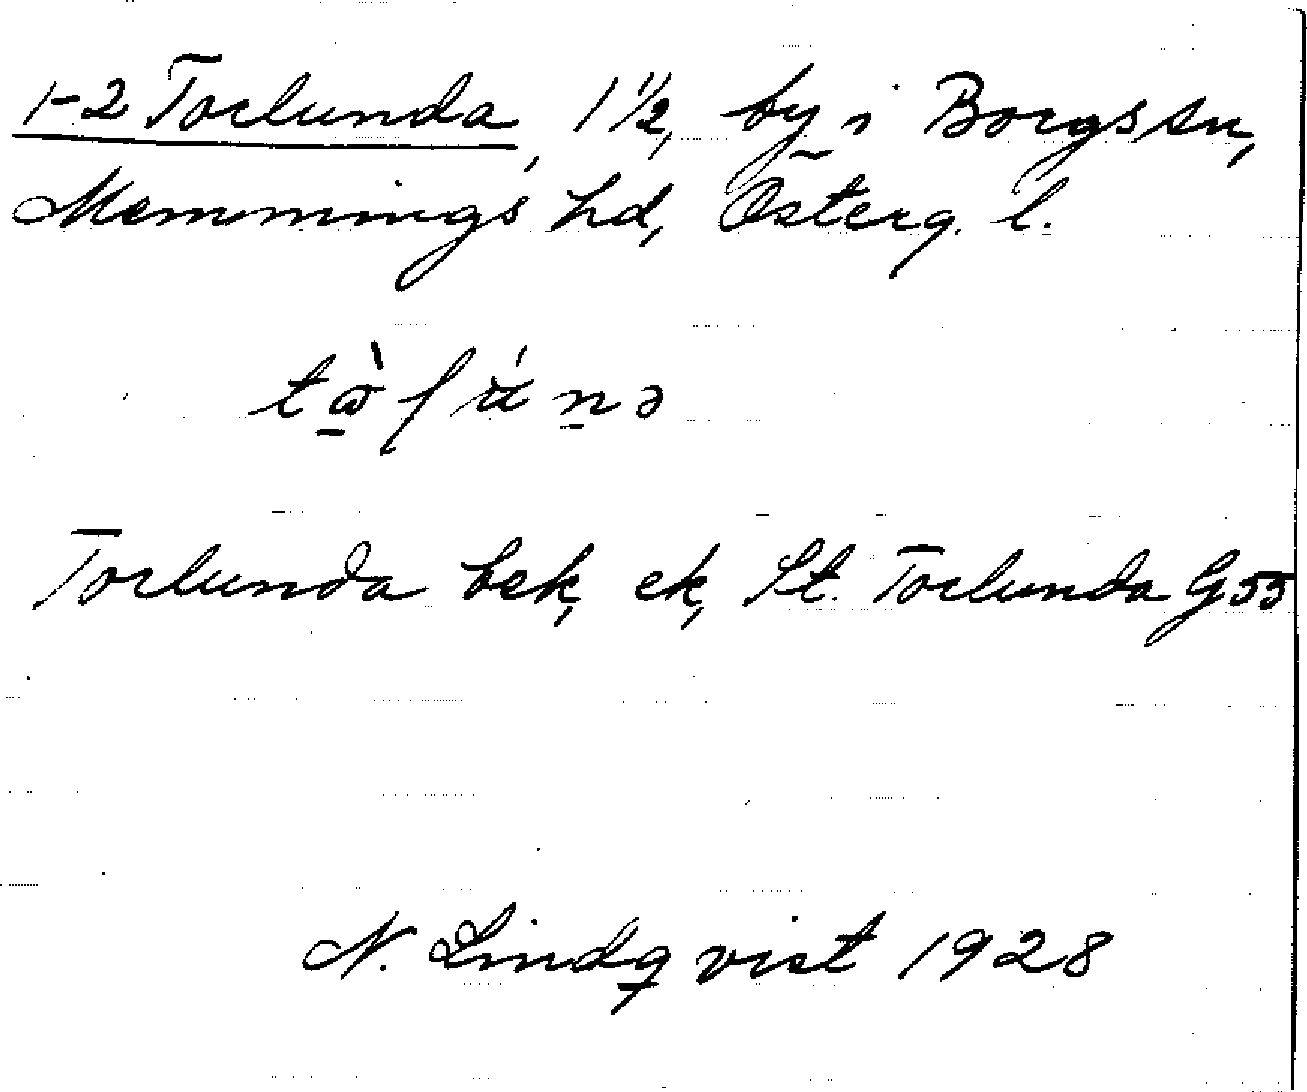 1-2 Torlunda, 1 1/2, by i Borgs sn,
Memmings hd, Österg. l.
Torlunda bek, ek, St. Torlunda G55
N. Lindqvist 1928